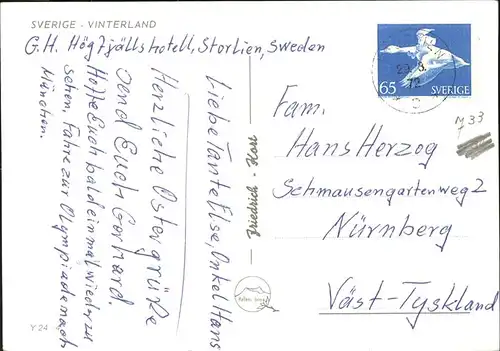 SVERIGE - VINTERLAND
G.H. Högfjällshotell, Storlien, Sweden
Liebe Tante Else, Onkel Hans
Herzliche Ostergrüße
send Euch Gerhard.
Hoffe Euch bald einmal wieder zu
sehen, Fahre zur Olympiade nach
München.
Y 24
SVERIGE
65
M 33
Fam.
Hans Herzog
Schmausengartenweg 2
Nürnberg
Väst-Tyskland